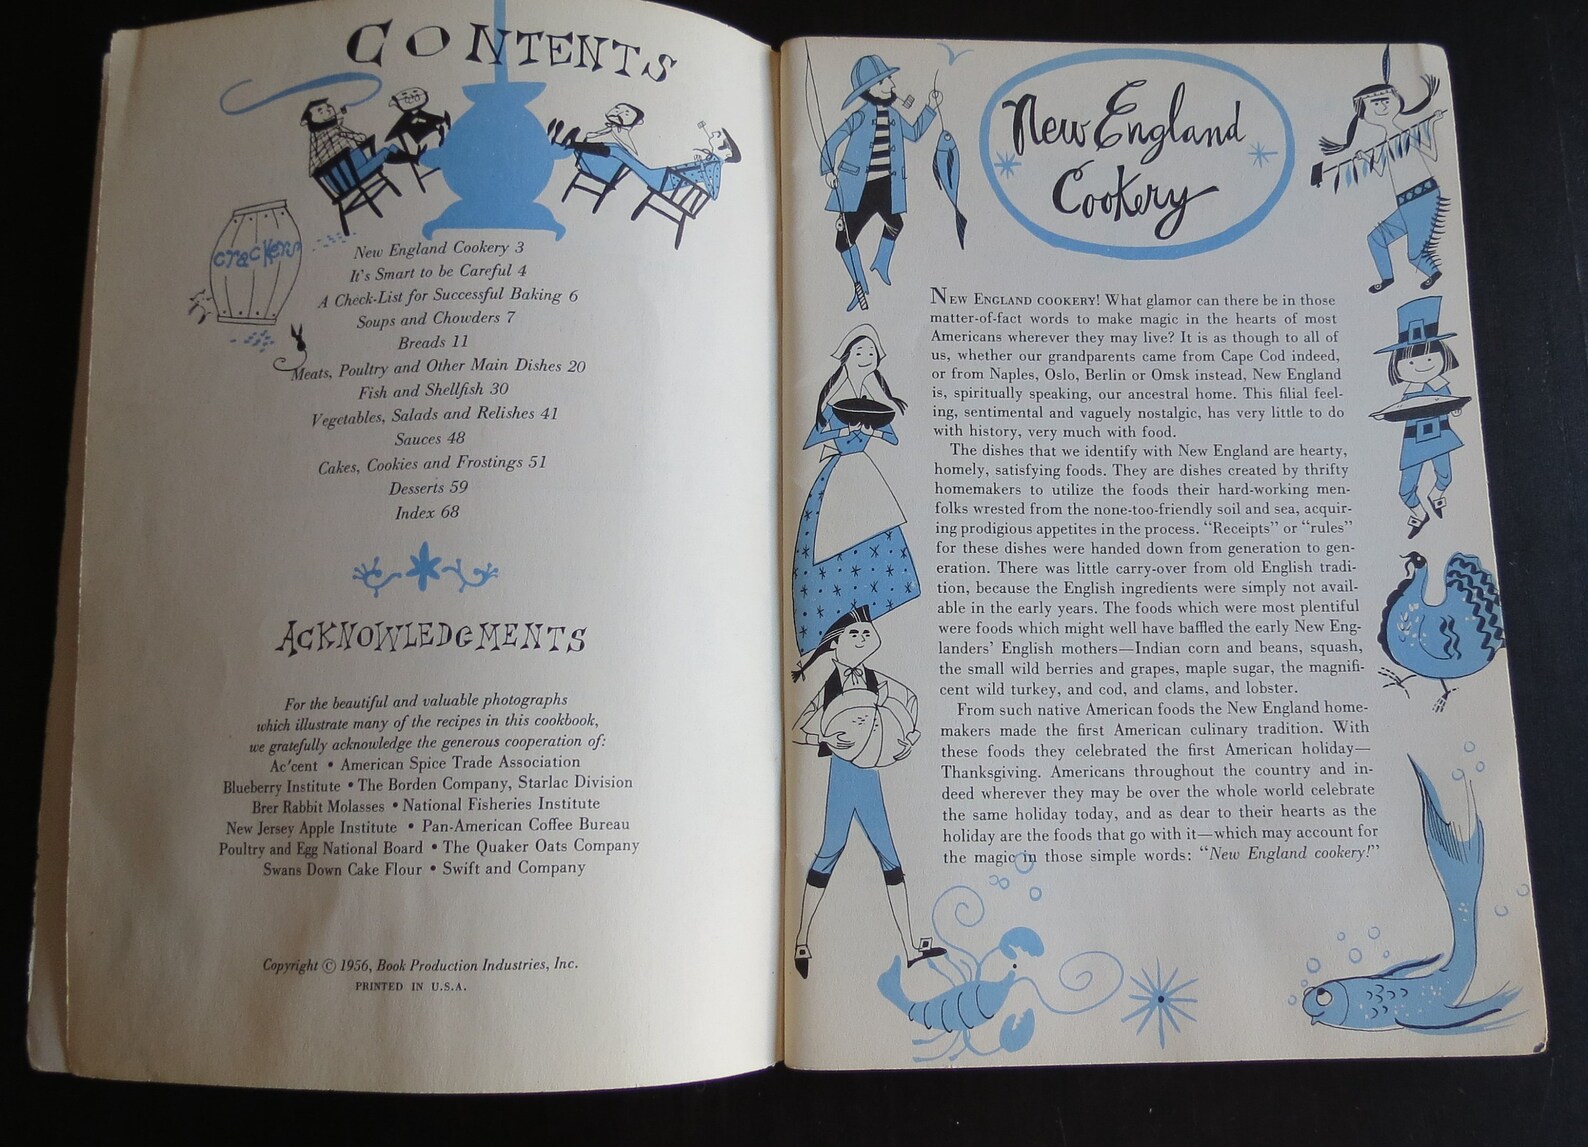 CONTENTS
crackers
New England Cookery 3
It's Smart to be Careful 4
A Check-List for Successful Baking 6
Soups and Chowders 7
Breads 11
Meats, Poultry and Other Main Dishes 20
Fish and Shellfish 30
Vegetables, Salads and Relishes 41
Sauces 48
Cakes, Cookies and Frostings 51
Desserts 59
Index 68
ACKNOWLEDGMENTS
For the beautiful and valuable photographs
which illustrate many of the recipes in this cookbook,
we gratefully acknowledge the generous cooperation of:
Ac'cent • American Spice Trade Association
Blueberry Institute • The Borden Company, Starlac Division
Brer Rabbit Molasses • National Fisheries Institute
New Jersey Apple Institute • Pan-American Coffee Bureau
Poultry and Egg National Board • The Quaker Oats Company
Swans Down Cake Flour • Swift and Company
Copyright © 1956, Book Production Industries, Inc.
PRINTED IN U.S.A.
New England
Cookery
NEW ENGLAND COOKERY! What glamor can there be in those
matter-of-fact words to make magic in the hearts of most
Americans wherever they may live? It is as though to all of
us, whether our grandparents came from Cape Cod indeed,
or from Naples, Oslo, Berlin or Omsk instead, New England
is, spiritually speaking, our ancestral home. This filial feel-
ing, sentimental and vaguely nostalgic, has very little to do
with history, very much with food.
The dishes that we identify with New England are hearty,
homely, satisfying foods. They are dishes created by thrifty
homemakers to utilize the foods their hard-working men-
folks wrested from the none-too-friendly soil and sea, acquir-
ing prodigious appetites in the process. "Receipts" or "rules"
for these dishes were handed down from generation to gen-
eration. There was little carry-over from old English tradi-
tion, because the English ingredients were simply not avail-
able in the early years. The foods which were most plentiful
were foods which might well have baffled the early New Eng-
landers' English mothers—Indian corn and beans, squash,
the small wild berries and grapes, maple sugar, the magnifi-
cent wild turkey, and cod, and clams, and lobster.
From such native American foods the New England home-
makers made the first American culinary tradition. With
these foods they celebrated the first American holiday—
Thanksgiving. Americans throughout the country and in-
deed wherever they may be over the whole world celebrate
the same holiday today, and as dear to their hearts as the
holiday are the foods that go with it—which may account for
the magic in those simple words: "New England cookery!"